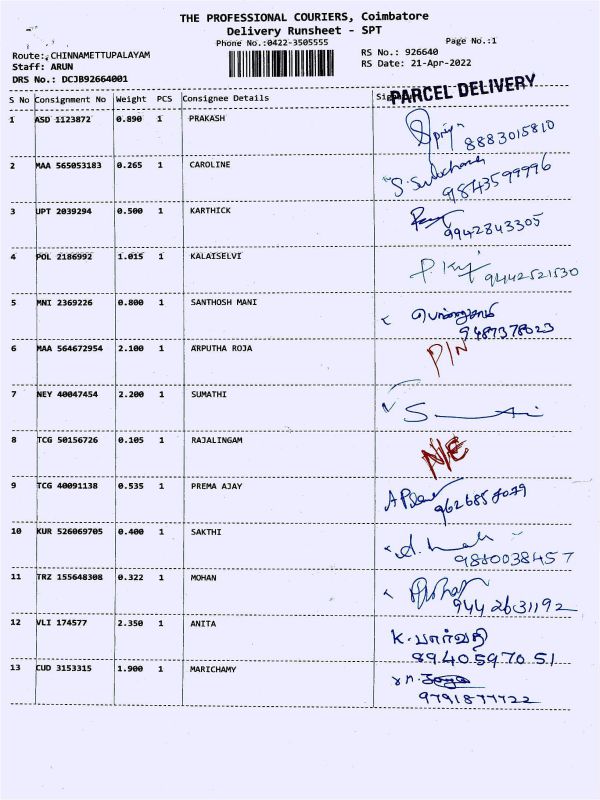 THE PROFESSIONAL COURIERS, Coimbatore
Delivery Runsheet - SPT
Phone No.:0422-3505555 Page No.:1
Route: CHINNAMETTUPALAYAM RS No.: 926640
Staff: ARUN RS Date: 21-Apr-2022
DRS No.: DCJB92664001
PARCEL DELIVERY
S No Consignment No Weight PCS Consignee Details
1 ASD 1123872 0.890 1 PRAKASH
8883015810
2 MAA 565053183 0.265 1 CAROLINE
9843599996
3 UPT 2039294 0.500 1 KARTHICK
9942843305
4 POL 2186992 1.015 1 KALAISELVI
9442521530
5 MNI 2369226 0.800 1 SANTHOSH MANI
9487378023
6 MAA 564672954 2.100 1 ARPUTHA ROJA P/N
7 NEY 40047454 2.200 1 SUMATHI
8 TCG 50156726 0.105 1 RAJALINGAM N/C
9 TCG 40091138 0.535 1 PREMA AJAY
10 KUR 526069705 0.400 1 SAKTHI
9880038457
11 TRZ 155648308 0.322 1 MOHAN
9442631192
12 VLI 174577 2.350 1 ANITA K. பார்வதி
8940597051
13 CUD 3153315 1.900 1 MARICHAMY
9791877722